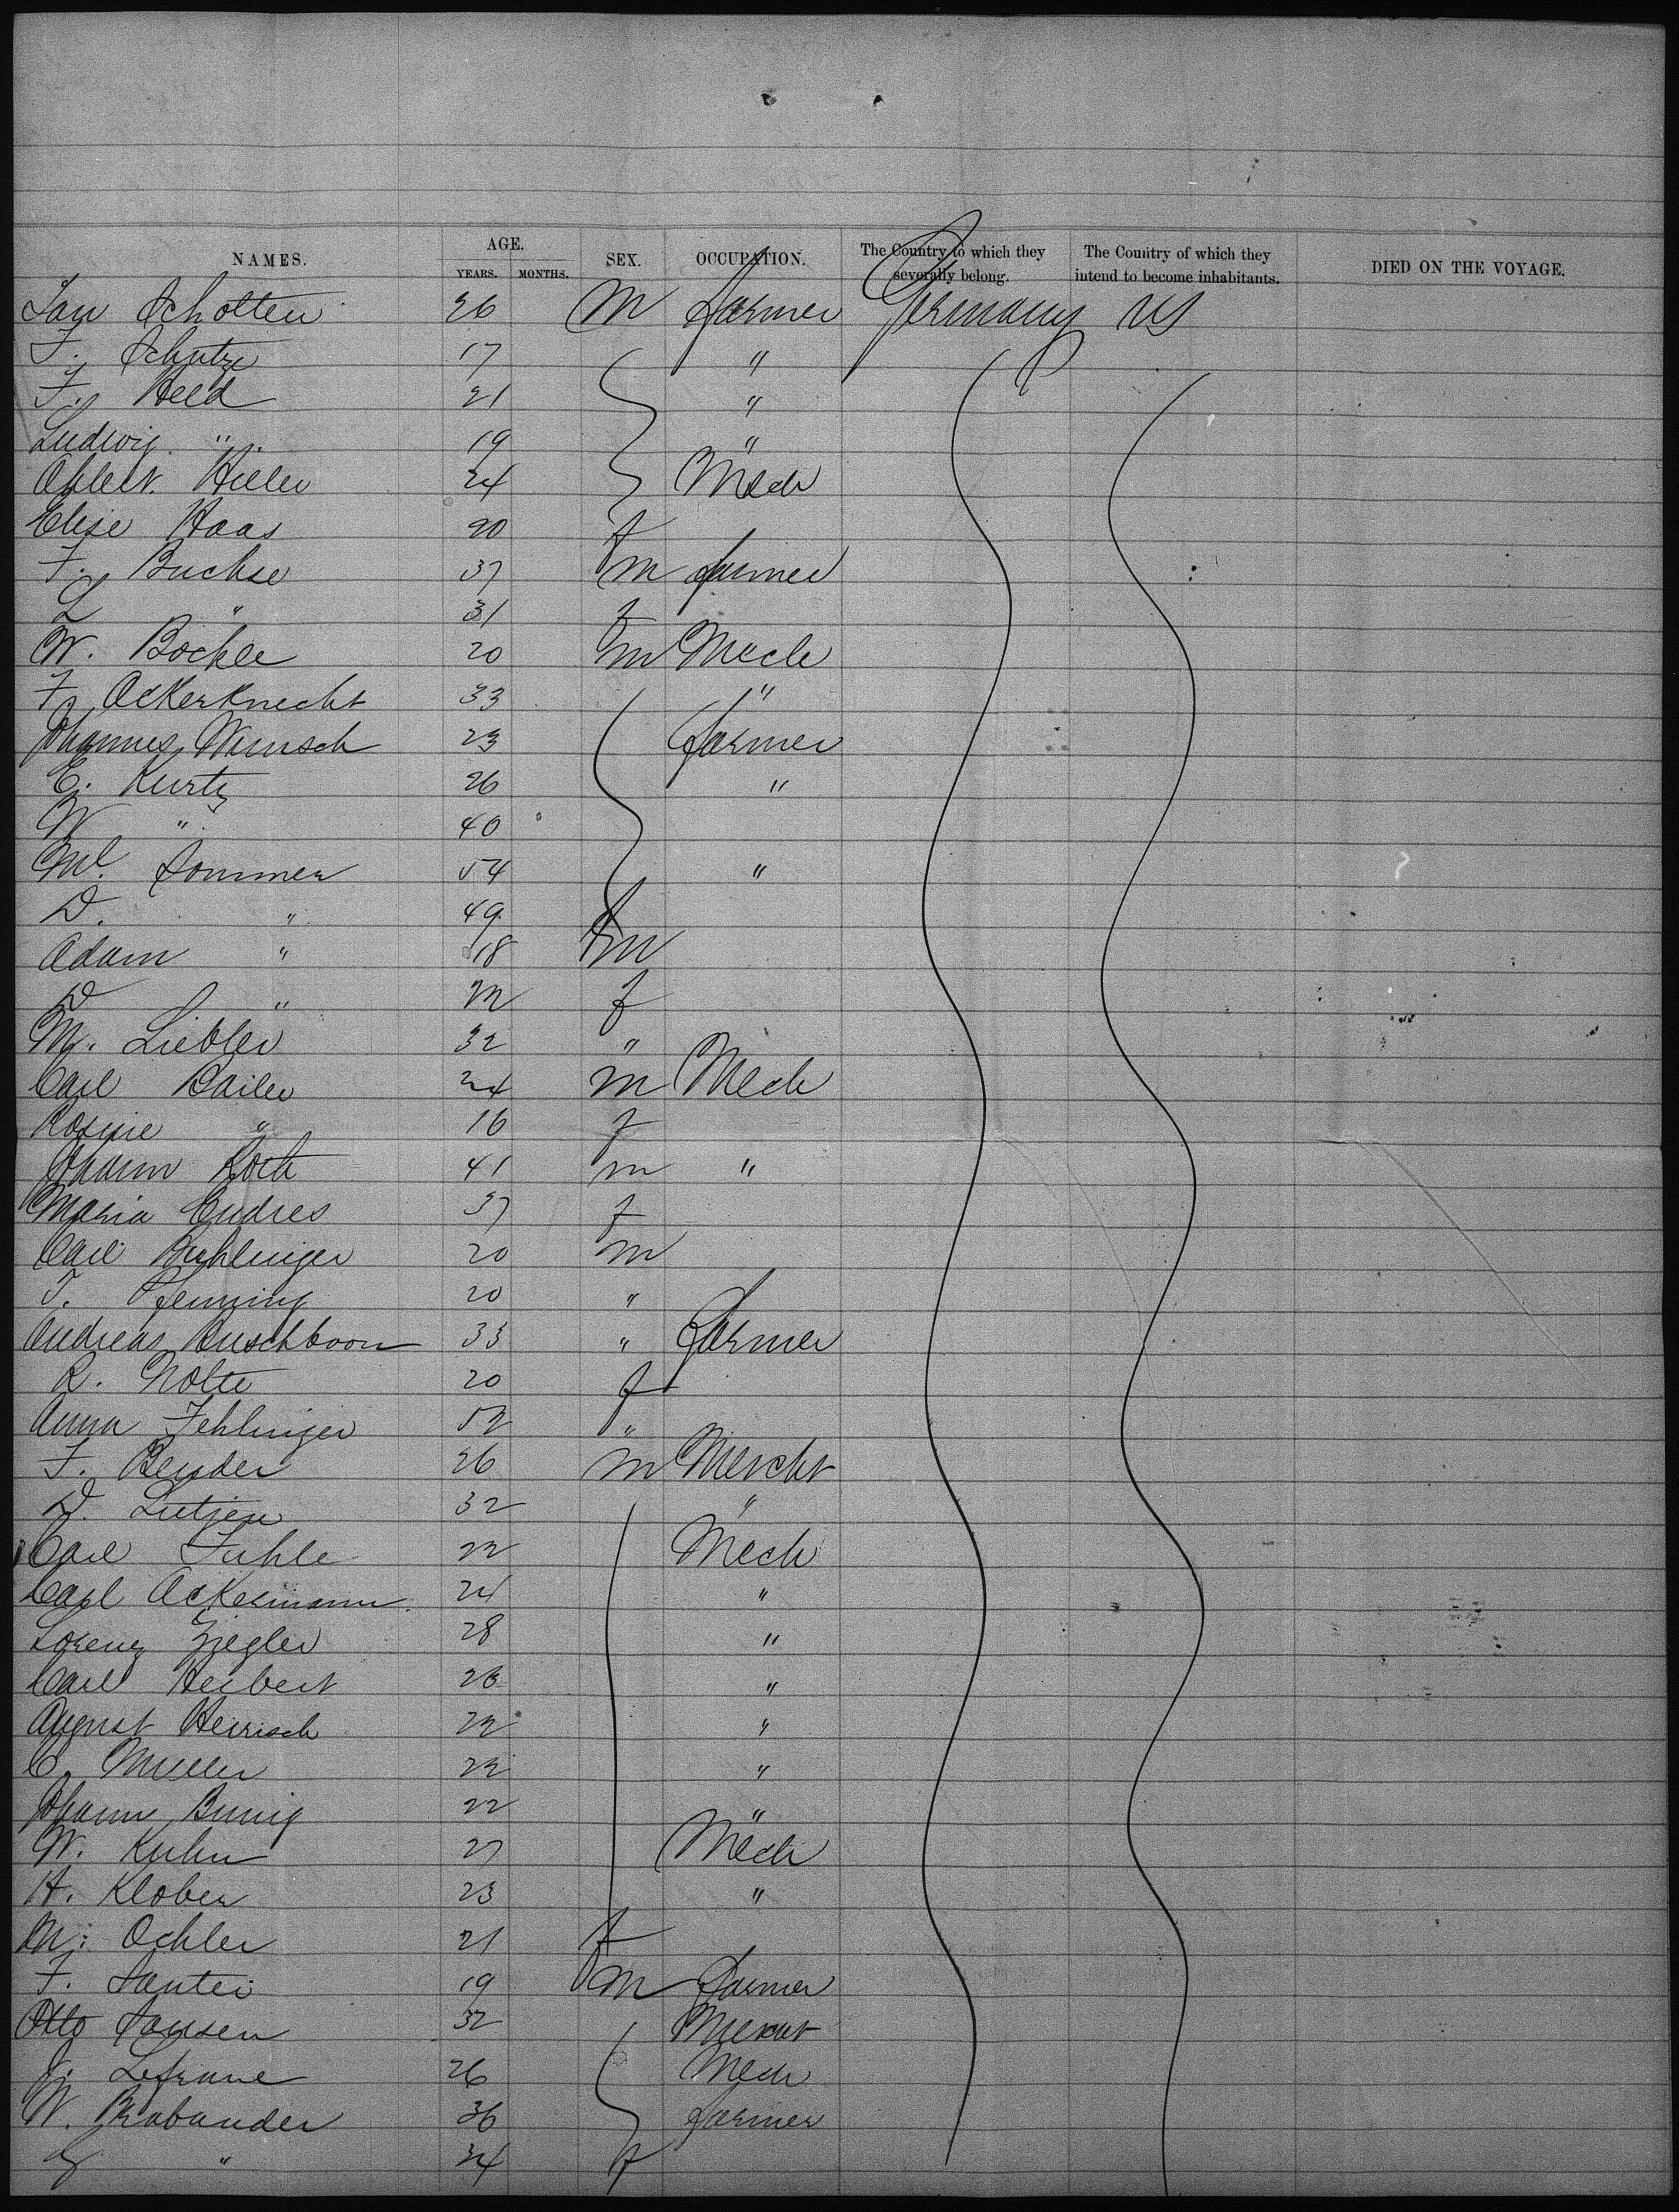 NAMES. AGE. SEX. OCCUPATION. The Country to which they severally belong. The Country of which they intend to become inhabitants. DIED ON THE VOYAGE.
YEARS. MONTHS.
Jan Scholten 26 M Farmer Germany US
F. Schutze 17 "
F. Held 21 "
Ludwig " 19 "
Hiller 24 Mech
Elise Haas 20 f
F. Buchse 37 m farmer
L " 31 f
W. Bockle 20 m Mech
F. Ackerknecht 33 "
Johannes Wunsch 23 Farmer
C. Kurtz 26 "
W " 40
Ml. Sommer 54 "
D. " 49 f
Adam " 18 m
D " 22 f
M. Liebler 32 "
Carl Bailer 24 m Mech
Rosine " 16 f
Johann Roth 41 m "
Maria Endres 37 f
Carl Buhlinger 20 m
T. Pfenning 20 "
Andreas Buschboom 33 " Farmer
R. Nolte 20 f
Anna Fehlinger 52 "
F. Bender 26 m Mercht
D. Lutjen 32 "
Carl Fuhle 22 Mech
Carl Ackermann 24 "
Lorenz Ziegler 28 "
Carl Herbert 26 "
August Heirisch 22 "
C. Muller 22 "
Johann Bunig 22 "
W. Kuhn 27 Mech
H. Klober 23 "
M. Ochler 21 f
F. Santer 19 m Farmer
Otto Jansen 32 Mercht
J. Lefranc 26 Mech
W. Brabander 36 farmer
" 34 f